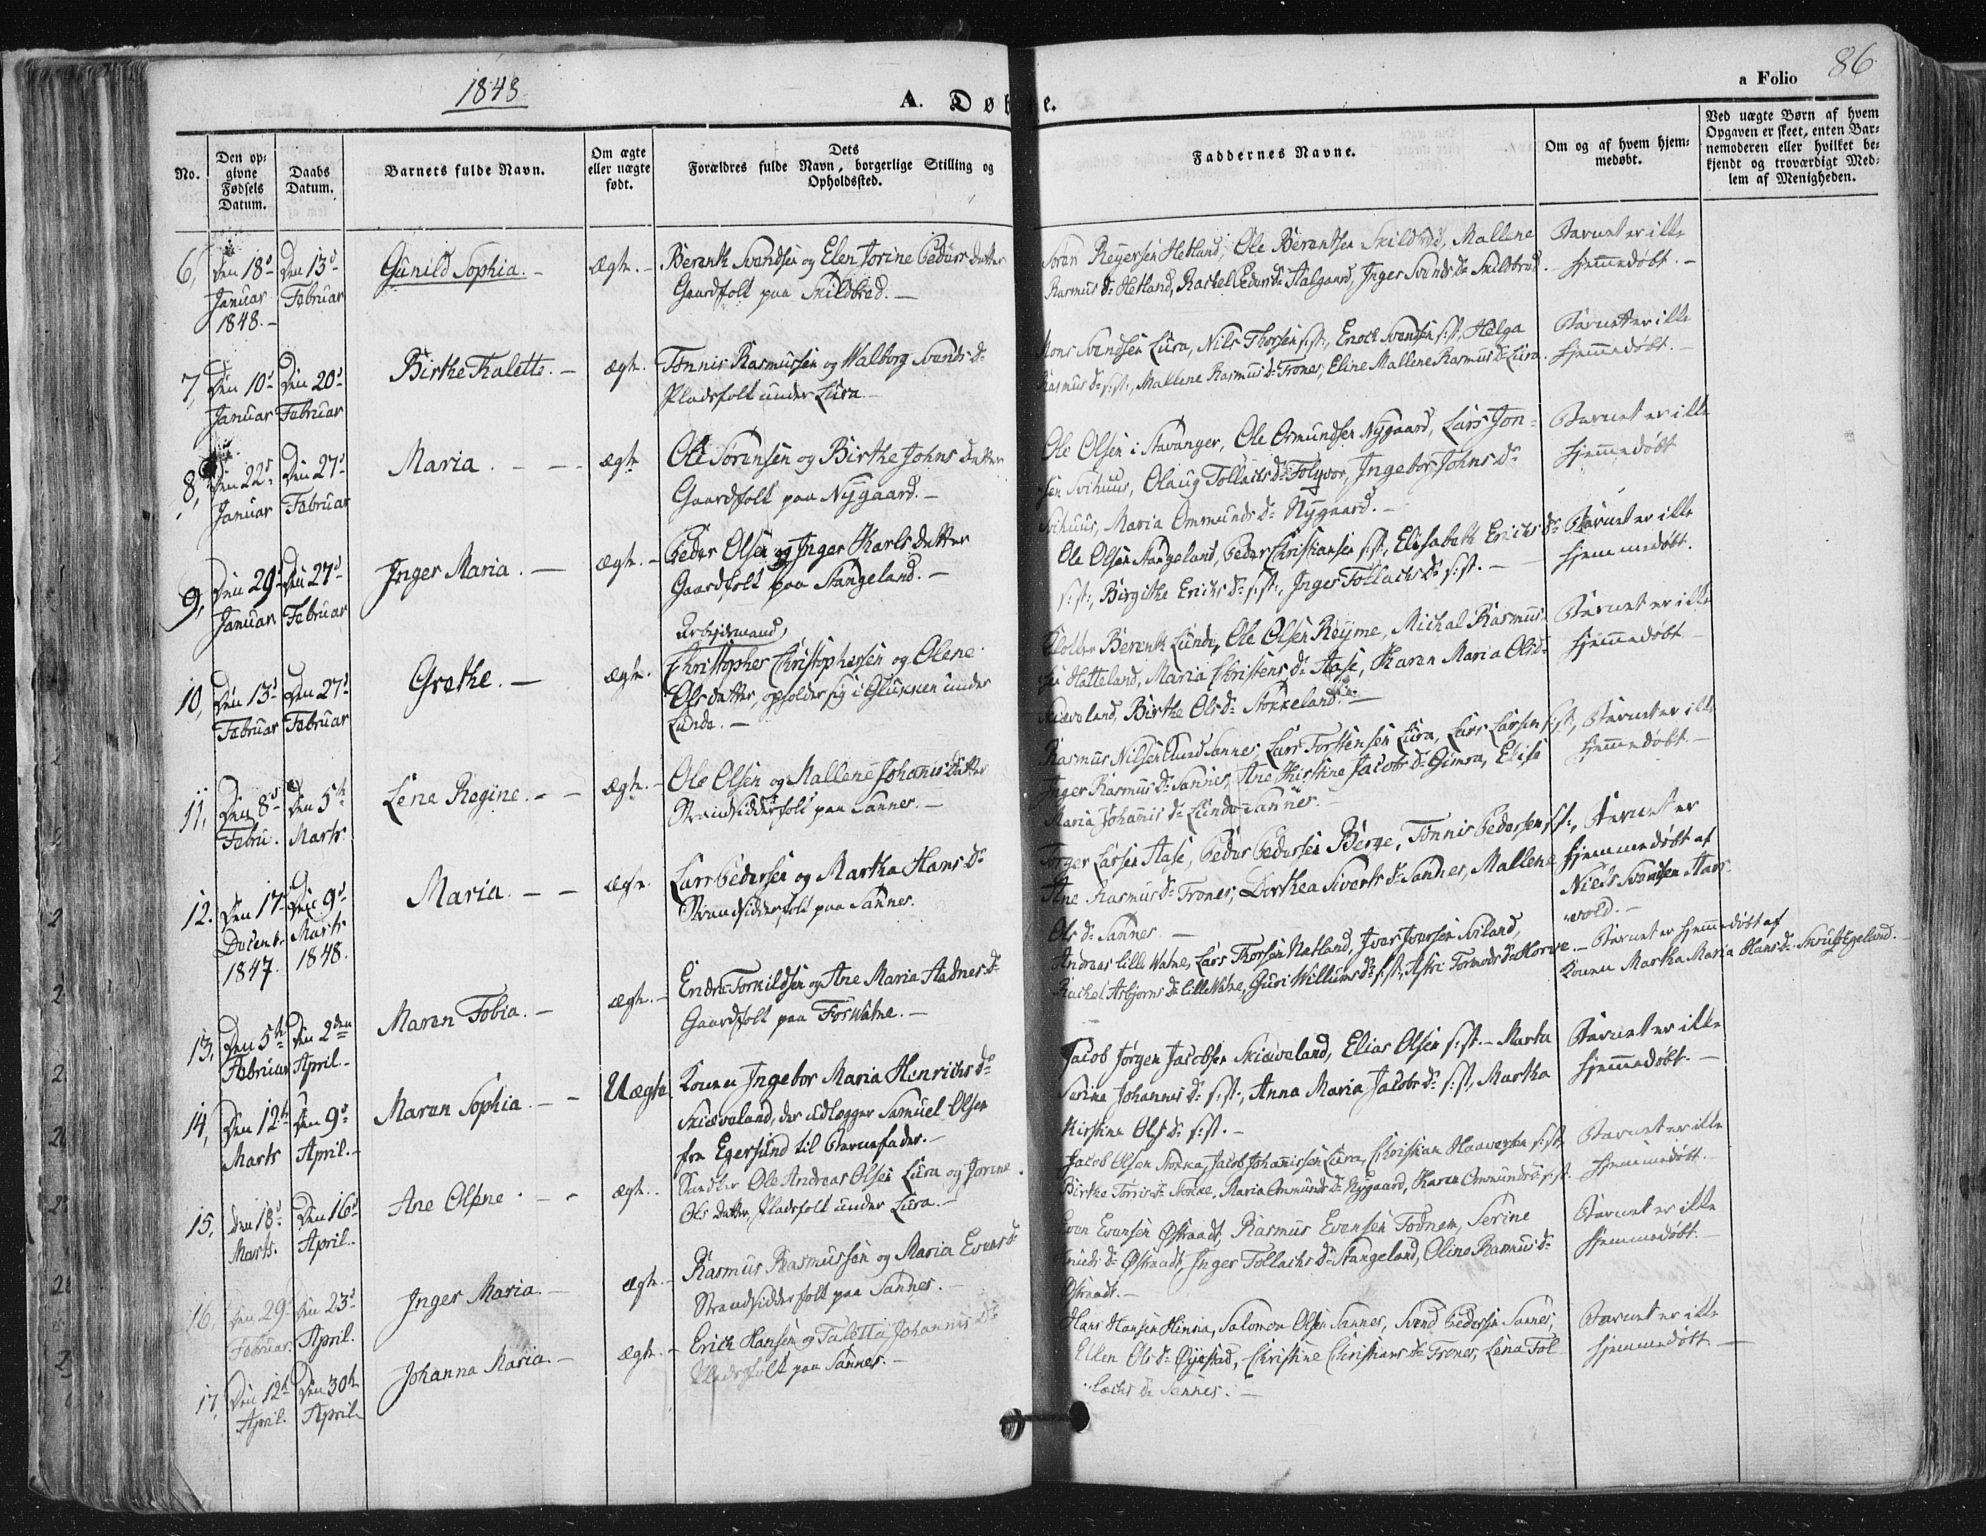 1848.
A. Døbte.
a Folio 86.
No.
Den opgivne Fødsels Datum.
Daabs Datum.
Barnets fulde Navn.
Om ægte eller uægte født.
Dets Forældres fulde Navn, borgerlige Stilling og Opholdssted.
Faddernes Navne.
Om og af hvem hjemmedøbt.
Ved uægte Børn af hvem Opgaven er skeet, enten Barnemoderen eller hvilket bekjendt og troværdigt Medlem af Menigheden.
6, Den 18d Januar 1848. - Den 13d Februar Gunild Sophia. - Ægte. - Berent Svendsen og Elen Jorine Peders datter
Gaardfolk paa Skildbred. -
Søren Reyersen Hetland, Ole Berentsen Skildbred, Mallene
Rasmus Dr Hetland, Rachel Peders Dr Aalgaard, Inger Svends Dr Skildbred.
Barnet er ikke
hjemmedøbt. -
7, Den 10d Januar Den 20d Februar Birthe Talette. - ægte. Tønnis Rasmussen og Valborg Svends Dr
Pladsfolk under Lura -
Mons Svendsen Lura, Nils Thorsen s:st:, Enoch Svendsen s:st:, Helga
Rasmus Dr s:st:, Mallene Rasmus Dr Trones, Eline Mallene Rasmus Dr Lura.
Barnet er ikke
hjemmedøbt. -
8, Den 22d Januar Den 27d Februar Maria. - - ægte Ole Sørensen og Birthe Johns datter
Gaardfolk paa Nygaard. -
Ole Olsen i Stavanger, Ole Omundsen Nygaard, Lars Jon-
sen Svihuus, Olaug Tollachs Dr Folgvor, Ingebor Johns Dr
Svihuus, Maria Ommunds Dr Nygaard. -
Barnet er ikke
hjemmedøbt
9, Den 29d Januar Den 27d Februar Inger Maria. - ægte. - Peder Olsen og Inger Karls datter
Gaardfolk paa Stangeland. -
Ole Olsen Stangeland, Peder Christiansen s:st:, Elisabeth Erichs Dr
s:st:, Birgithe Erichs Dr s:st:, Inger Tollachs Dr s:st. -
Barnet er ikke
hjemmedøbt.
10, Den 13d Februar Den 27d Februar Grethe. - ægte. Arbeidsmand,
Christopher Christophersen og Olene
Ols datter, opholder sig i Glippen under
Lunde. -
Berent Lunde, Ole Olsen Reyme, Michal Rasmus-
sen Hatteland, Maria Christens Dr Aase, Karen Maria Ols Dr
Skiæveland, Birthe Ols Dr Stokkeland. -
Barnet er ikke
hjemmedøbt -
11, Den 8d Febru. Den 5th Marts Lene Regine. - - ægte. - Ole Olsen og Mallene Johanis datter
Strandsidderfolk paa Sannes. -
Rasmus Nilsen Sannes, Lars Torstensen Lura, Lars Larsen s:st:,
Inger Rasmus Dr Sannes, Ane Kirstine Jacobs Dr Gimra, Elise
Maria Johanis Dr Lunde Sannes. -
Barnet er ikke
hjemmedøbt -
12. Den 17d Decembr 1847. Den 9d Marts 1848. Maria. - - ægte. Lars Pedersen og Martha Hans Dr
Strandsidderfolk paa Sannes.
Torger Larsen Aase, Peder Pedersen Berge, Tønnis Pedersen s:st:,
Ane Rasmus Dr Trones, Dorthea Siverts Dr Sandnes, Mallene
Ols Dr Sannes. -
Barnet er
hjemmedøbt af
Niels Svendsen Aars-
vold. -
13, Den 5th Februar Den 2den April - Maren Tobia. - ægte. - Endre Torkildsen og Ane Maria Aadnes Dr
Gaardfolk paa Foswatne. -
Andreas Lille Watne, Lars Thorsen Hetland, Iver Iversen Sviland,
Rachel Asbjorns Dr Lille Watne, Guri Willums Dr s:st:, Astri Tormods Dr Horve. -
Barnet er hjemmedøbt af
Konen Martha Maria Hans Dr Skrussegeland. -
14, Den 12th Marts Den 9d April. - Maren Sophia. - - Uægte. Konen Ingebor Maria Henrichs Dr
Skiæveland, der udlægger Samuel Olsen
fra Egersund til Barnefader. -
Jacob Jørgen Jacobsen Skiæveland, Elias Olsen s:st. - Marta
Serina Johannes Dr s:st:, Anna Maria Jacobs Dr s:st, Martha
Kirstine Ols Dr s:st. -
Barnet er ikke
hjemmedøbt. -
15, Den 18d Marts. Den 16d April. Ane Olene. - - ægte. Handler Ole Andreas Olsen Lura og Jorine
Ols datter, Pladsfolk under Lura. -
Jacob Olsen Stokka, Jacob Johannissen Lura, Christian Haaversen s:st,
Birthe Torris Dr Stokke, Maria Ommunds Dr Nygaard, Karen Ommunds Dr s:st.
Barnet er ikke
hjemmedøbt.
16, Den 29d Februar. Den 23d April. Inger Maria. - ægte. - Rasmus Rasmussen og Maria Evens Dr
Strandsidderfolk paa Sannes. -
Even Evensen Østraadt, Rasmus Evensen Todnem, Serine
Knuds Dr Østraadt, Inger Tollachs Dr Stangeland, Oline Rasmus Dr
Østraadt. -
Barnet er ikke
hjemmedøbt. -
17, Den 12th April. Den 30th April - Johanna Maria. - ægte. - Erich Hansen og Taletta Johannis Dr
Pladsfolk paa Sannes. -
Hans Hansen Hinna, Salomon Olsen Sannes, Svend Pedersen Sannes,
Ellen Ols Dr Øyestad, Christine Christians Dr Trones, Lena Tol-
lachs Dr Sannes. -
Barnet er ikke
hjemmedøbt -